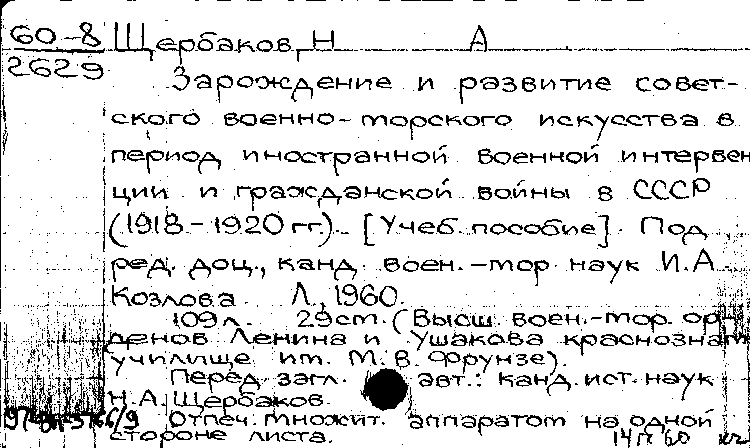 60-8 Щербаков, Н А
2629
Зарождение и развитие совет-
ского военно-морского искусства в
период иностранной военной интервен
ции и гражданской войны в СССР
(1918-1920 гг). [Учеб. пособие]. Под
ред. доц., канд. воен.-мор. наук И.А.
Козлова. Л., 1960.
109 л. 29 см. (Высш. воен.-мор. ор-
денов Ленина и Ушакова краснознам
училище им. М.В. Фрунзе).
Перед загл. авт.: канд. ист. наук
Н.А. Щербаков.
Отпеч. множит. аппаратом на одной
стороне листа.
14 п 60